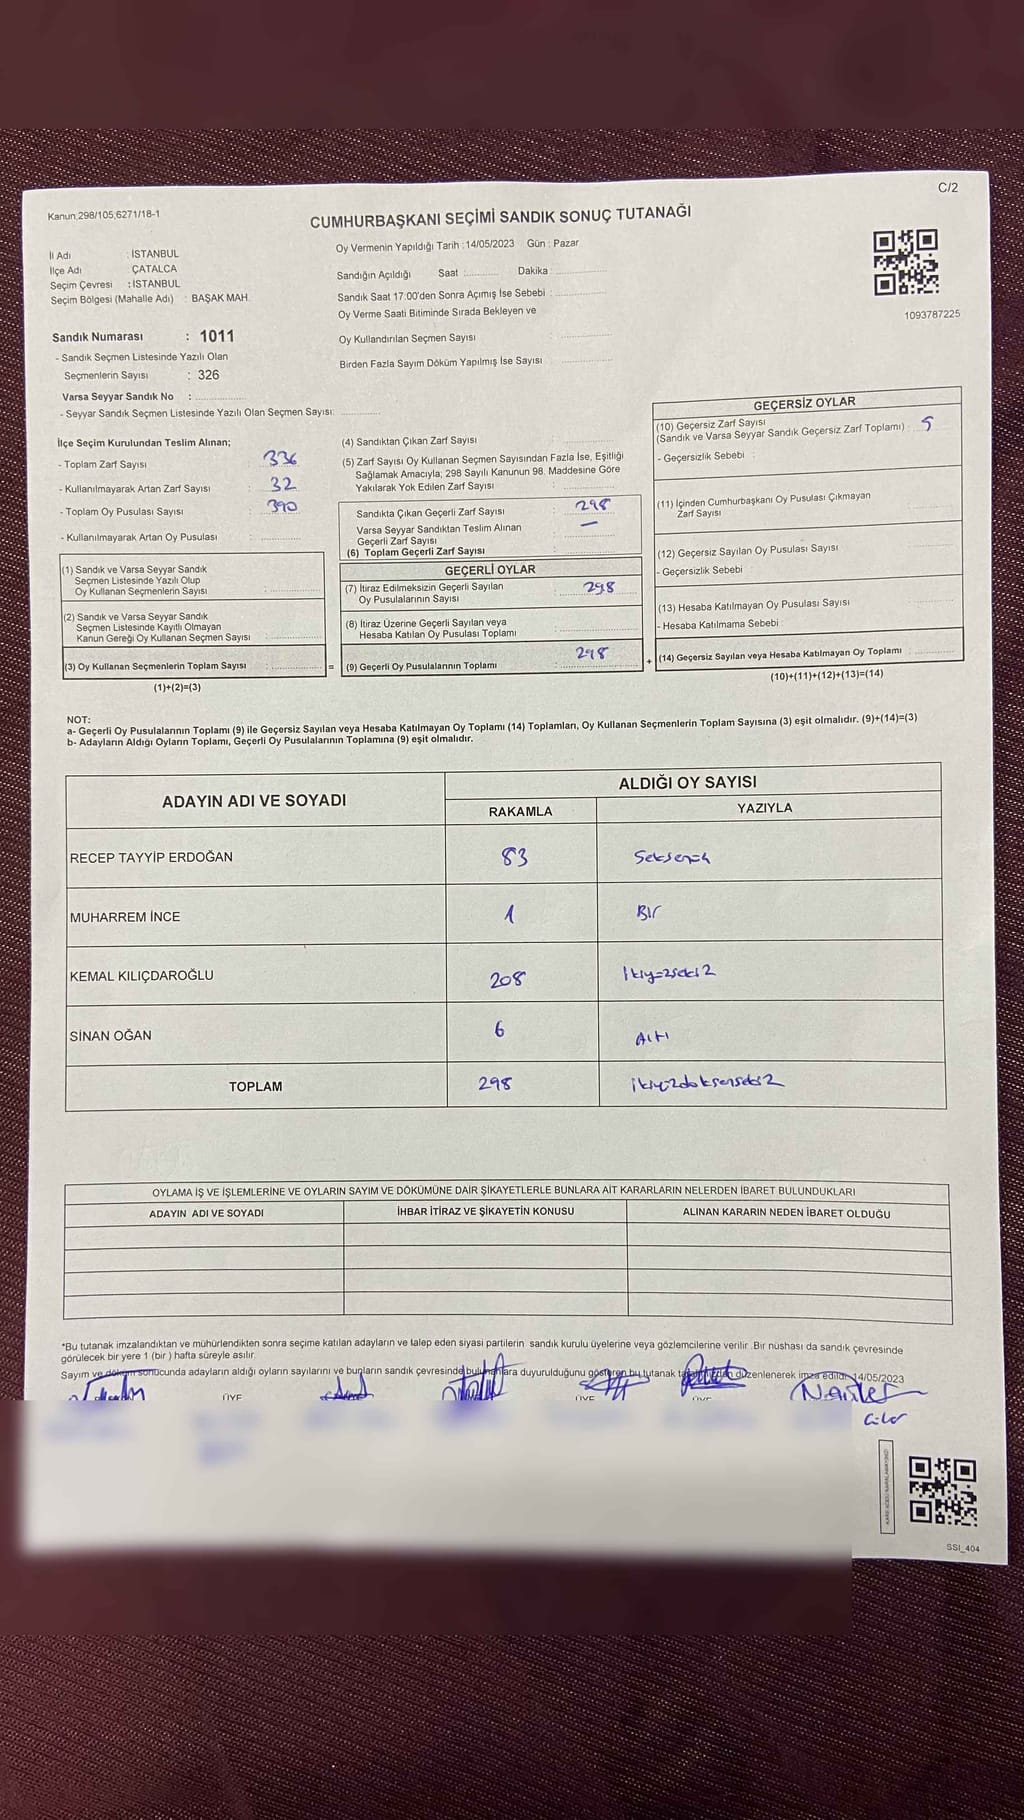 C/2
Kanun;298/105,6271/18-1
CUMHURBAŞKANI SEÇİMİ SANDIK SONUÇ TUTANAĞI
İl Adı : İSTANBUL
İlçe Adı ÇATALCA
Seçim Çevresi : İSTANBUL
Seçim Bölgesi (Mahalle Adı) : BAŞAK MAH.
Oy Vermenin Yapıldığı Tarih : 14/05/2023 Gün : Pazar
Sandığın Açıldığı Saat :............ Dakika :................
Sandık Saat 17:00'den Sonra Açımış İse Sebebi :................
Oy Verme Saati Bitiminde Sırada Bekleyen ve
Oy Kullandırılan Seçmen Sayısı :................
Birden Fazla Sayım Döküm Yapılmış İse Sayısı :................
1093787225
Sandık Numarası : 1011
- Sandık Seçmen Listesinde Yazılı Olan
Seçmenlerin Sayısı : 326
Varsa Seyyar Sandık No :................
- Seyyar Sandık Seçmen Listesinde Yazılı Olan Seçmen Sayısı: ............
İlçe Seçim Kurulundan Teslim Alınan;
- Toplam Zarf Sayısı : 336
- Kullanılmayarak Artan Zarf Sayısı : 32
- Toplam Oy Pusulası Sayısı : 390
- Kullanılmayarak Artan Oy Pusulası :............
(1) Sandık ve Varsa Seyyar Sandık
Seçmen Listesinde Yazılı Olup
Oy Kullanan Seçmenlerin Sayısı :................
(2) Sandık ve Varsa Seyyar Sandık
Seçmen Listesinde Kayıtlı Olmayan
Kanun Gereği Oy Kullanan Seçmen Sayısı :................
(3) Oy Kullanan Seçmenlerin Toplam Sayısı :................ =
(1)+(2)=(3)
(4) Sandıktan Çıkan Zarf Sayısı :................
(5) Zarf Sayısı Oy Kullanan Seçmen Sayısından Fazla İse, Eşitliği
Sağlamak Amacıyla; 298 Sayılı Kanunun 98. Maddesine Göre
Yakılarak Yok Edilen Zarf Sayısı :................
Sandıkta Çıkan Geçerli Zarf Sayısı : 298
Varsa Seyyar Sandıktan Teslim Alınan
Geçerli Zarf Sayısı : —
(6) Toplam Geçerli Zarf Sayısı :................
GEÇERLİ OYLAR
(7) İtiraz Edilmeksizin Geçerli Sayılan
Oy Pusulalarının Sayısı : 298
(8) İtiraz Üzerine Geçerli Sayılan veya
Hesaba Katılan Oy Pusulası Toplamı :................
(9) Geçerli Oy Pusulalarının Toplamı : 298 +
GEÇERSİZ OYLAR
(10) Geçersiz Zarf Sayısı
(Sandık ve Varsa Seyyar Sandık Geçersiz Zarf Toplamı) : 5
- Geçersizlik Sebebi :
(11) İçinden Cumhurbaşkanı Oy Pusulası Çıkmayan
Zarf Sayısı
(12) Geçersiz Sayılan Oy Pusulası Sayısı
- Geçersizlik Sebebi :
(13) Hesaba Katılmayan Oy Pusulası Sayısı
- Hesaba Katılmama Sebebi :
(14) Geçersiz Sayılan veya Hesaba Katılmayan Oy Toplamı :
(10)+(11)+(12)+(13)=(14)
NOT:
a- Geçerli Oy Pusulalarının Toplamı (9) ile Geçersiz Sayılan veya Hesaba Katılmayan Oy Toplamı (14) Toplamları, Oy Kullanan Seçmenlerin Toplam Sayısına (3) eşit olmalıdır. (9)+(14)=(3)
b- Adayların Aldığı Oyların Toplamı, Geçerli Oy Pusulalarının Toplamına (9) eşit olmalıdır.
ADAYIN ADI VE SOYADI ALDIĞI OY SAYISI
RAKAMLA YAZIYLA
RECEP TAYYİP ERDOĞAN 83
MUHARREM İNCE 1 BİR
KEMAL KILIÇDAROĞLU 208 ikiyüzseki2
SİNAN OĞAN 6 Altı
TOPLAM 298 ikiyü2doksanseki2
OYLAMA İŞ VE İŞLEMLERİNE VE OYLARIN SAYIM VE DÖKÜMÜNE DAİR ŞİKAYETLERLE BUNLARA AİT KARARLARIN NELERDEN İBARET BULUNDUKLARI
ADAYIN ADI VE SOYADI İHBAR İTİRAZ VE ŞİKAYETİN KONUSU ALINAN KARARIN NEDEN İBARET OLDUĞU
*Bu tutanak imzalandıktan ve mühürlendikten sonra seçime katılan adayların ve talep eden siyasi partilerin sandık kurulu üyelerine veya gözlemcilerine verilir. Bir nüshası da sandık çevresinde
görülecek bir yere 1 (bir ) hafta süreyle asılır.
Sayım ve döküm sonucunda adayların aldığı oyların sayılarını ve bunların sandık çevresinde bulunanlara duyurulduğunu gösteren bu tutanak düzenlenerek imza edildi. 14/05/2023
ÜYE ÜYE ÜYE
SSI_404